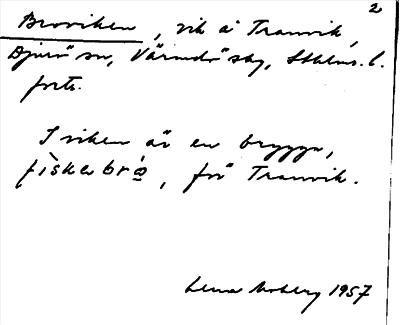 2
Broviken, vik å Tranvik,
Djurö sn, Värmdö skg, Sthlms. l.
forts.
I viken är en brygga,
fiskabrò̱, för Tranvik.
Lena Moberg 1957